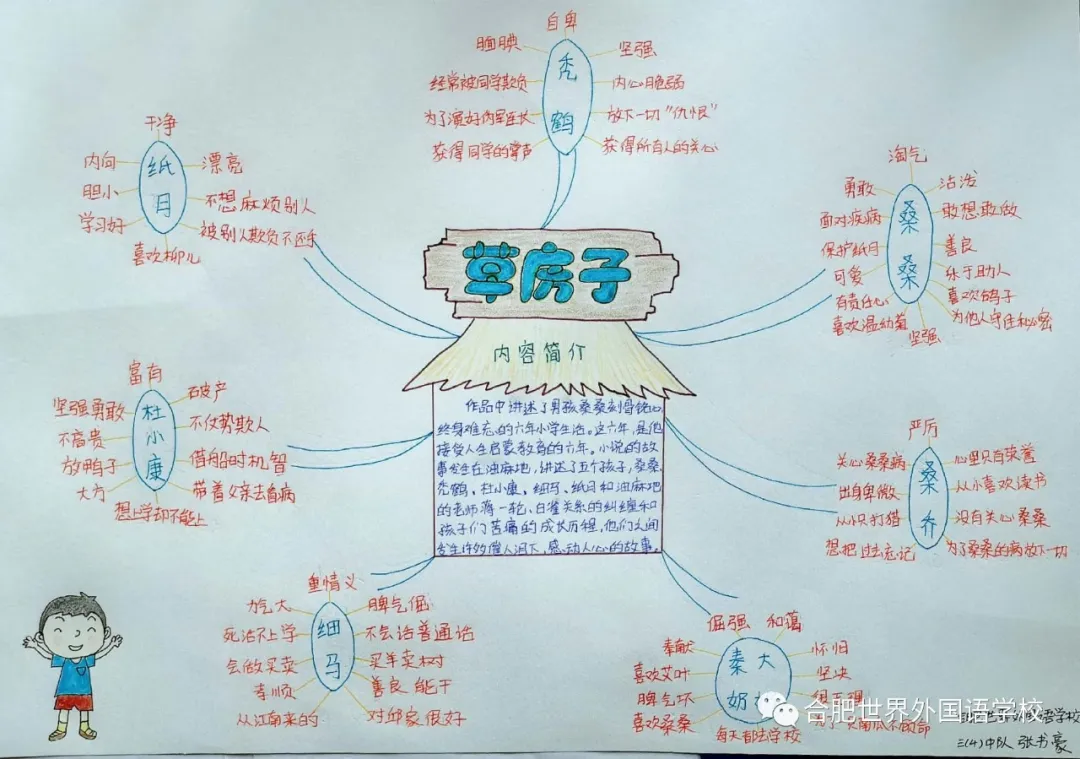 草房子
内容简介
作品中讲述了男孩桑桑刻骨铭心
终身难忘的六年小学生活。这六年,是他
接受人生启蒙教育的六年。小说的故
事发生在油麻地,讲述了五个孩子,桑桑
秃鹤、杜小康、细马、纸月和油麻地
的老师蒋一轮、白雀关系的纠缠和
孩子们苦痛的成长历程,他们之间
发生许多催人泪下,感动人心的故事。
秃鹤
自卑
腼腆
坚强
经常被同学欺负
内心脆弱
为了演好伪军连长
放下一切“仇恨”
获得同学的掌声
获得所有人的关心
纸月
干净
内向
漂亮
胆小
不想麻烦别人
学习好
被别人欺负不还手
喜欢柳儿
桑桑
淘气
勇敢
活泼
面对疾病
敢想敢做
保护纸月
善良
可爱
乐于助人
有责任心
喜欢鸽子
喜欢温幼菊
为他人守住秘密
坚强
杜小康
富有
坚强勇敢
破产
不富贵
不仗势欺人
放鸭子
借船时机智
大方
带着父亲去看病
想上学却不能上
桑乔
严厉
关心桑桑病
心里只有荣誉
出身卑微
从小喜欢读书
从小只打猎
没有关心桑桑
想把过去忘记
为了桑桑的病放下一切
细马
重情义
力气大
脾气倔
死活不上学
不会话普通话
会做买卖
买羊卖树
孝顺
善良 能干
从江南来的
对邱家很好
秦大奶
倔强
和蔼
奉献
怀旧
喜欢艾叶
坚决
脾气坏
喜欢桑桑
每天都去学校
合肥世界外国语学校
三(4)中队 张书豪